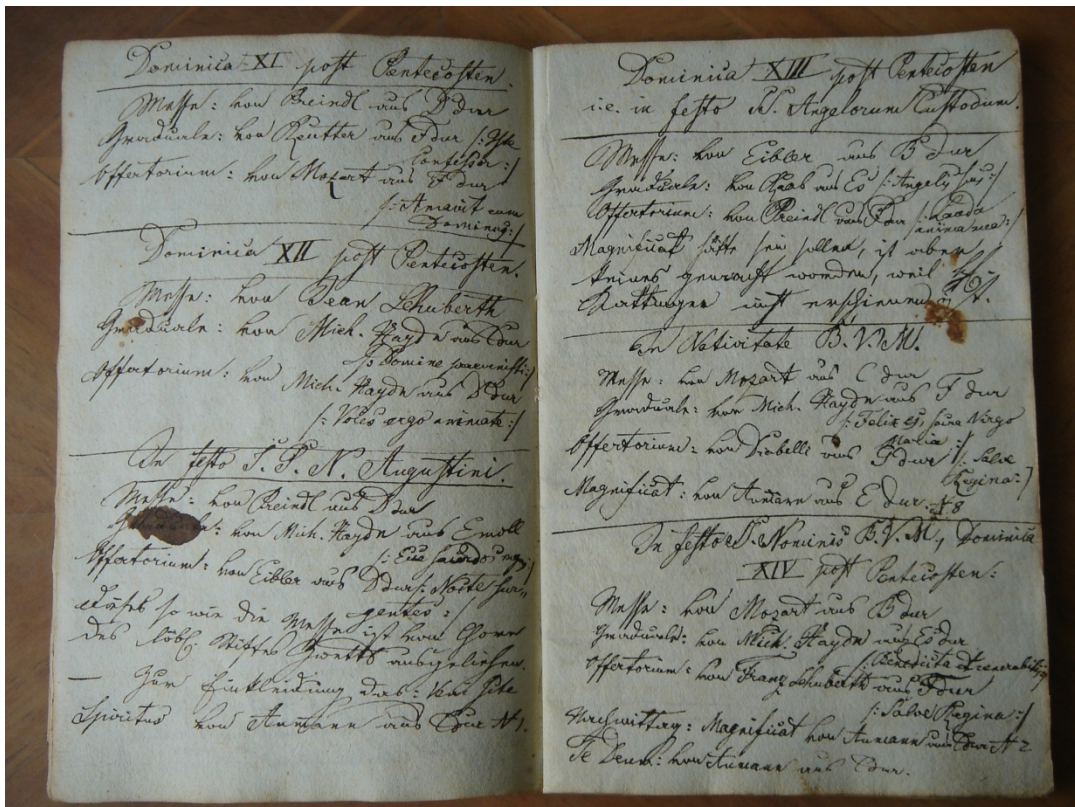 Dominica XI post Pentecosten.
Messe: von Preindl aus D dur
Graduale: von Reutter aus F dur /: Iste
Confessor :/
Offertorium: von Mozart aus F dur
/: Amavit eum
Dominus :/
Dominica XII post Pentecosten.
Messe: von Jean Schuberth
Graduale: von Mich. Haydn aus C dur
/: Domine praevenisti :/
Offertorium: von Mich. Haydn aus D dur
/: Voces ergo animate :/
In festo S. P. N. Augustini.
Messe: von Preindl aus D dur
Graduale: von Mich. Haydn aus E moll
/: Ecce sacerdos mag: :/
Offertorium: von Eibler aus D dur /: Nocte sur„
gentes :/
dieses so wie die Messe ist vom Chore
des löbl. Stiftes Zwettl ausgeliehen.
— Zur Einkleidung das: Veni Sste
Spiritus von Aumann aus C dur N 1.
Dominica XIII post Pentecosten
i.e. in festo SS. Angelorum Custodum.
Messe: von Eibler aus B dur
Graduale: von Raab aus Es /: Angelis suis :/
Offertorium: von Preindl aus F dur /: Lauda
anima mea :/
Magnificat hätte sein sollen, ist aber
keines gemacht worden, weil
nicht erschienen ist.
In Nativitate B. V. M.
Messe: von Mozart aus C dur
Graduale: von Mich. Haydn aus F dur
/: Felix es, sacra Virgo
Maria :/
Offertorium: von Diabelli aus F dur /: Salve
Regina :/
Magnificat: von Aumann aus E dur. N 8
In festo S. Nominis B. V. M., Dominica
XIV post Pentecosten:
Messe: von Mozart aus B dur
Graduale: von Mich. Haydn aus Es dur
/: Benedicta et venerabilis :/
Offertorium: von Franz Schuberth aus F dur
/: Salve Regina :/
Nachmittag: Magnificat von Aumann aus C dur N 2
Te Deum: von Aumann aus C dur.